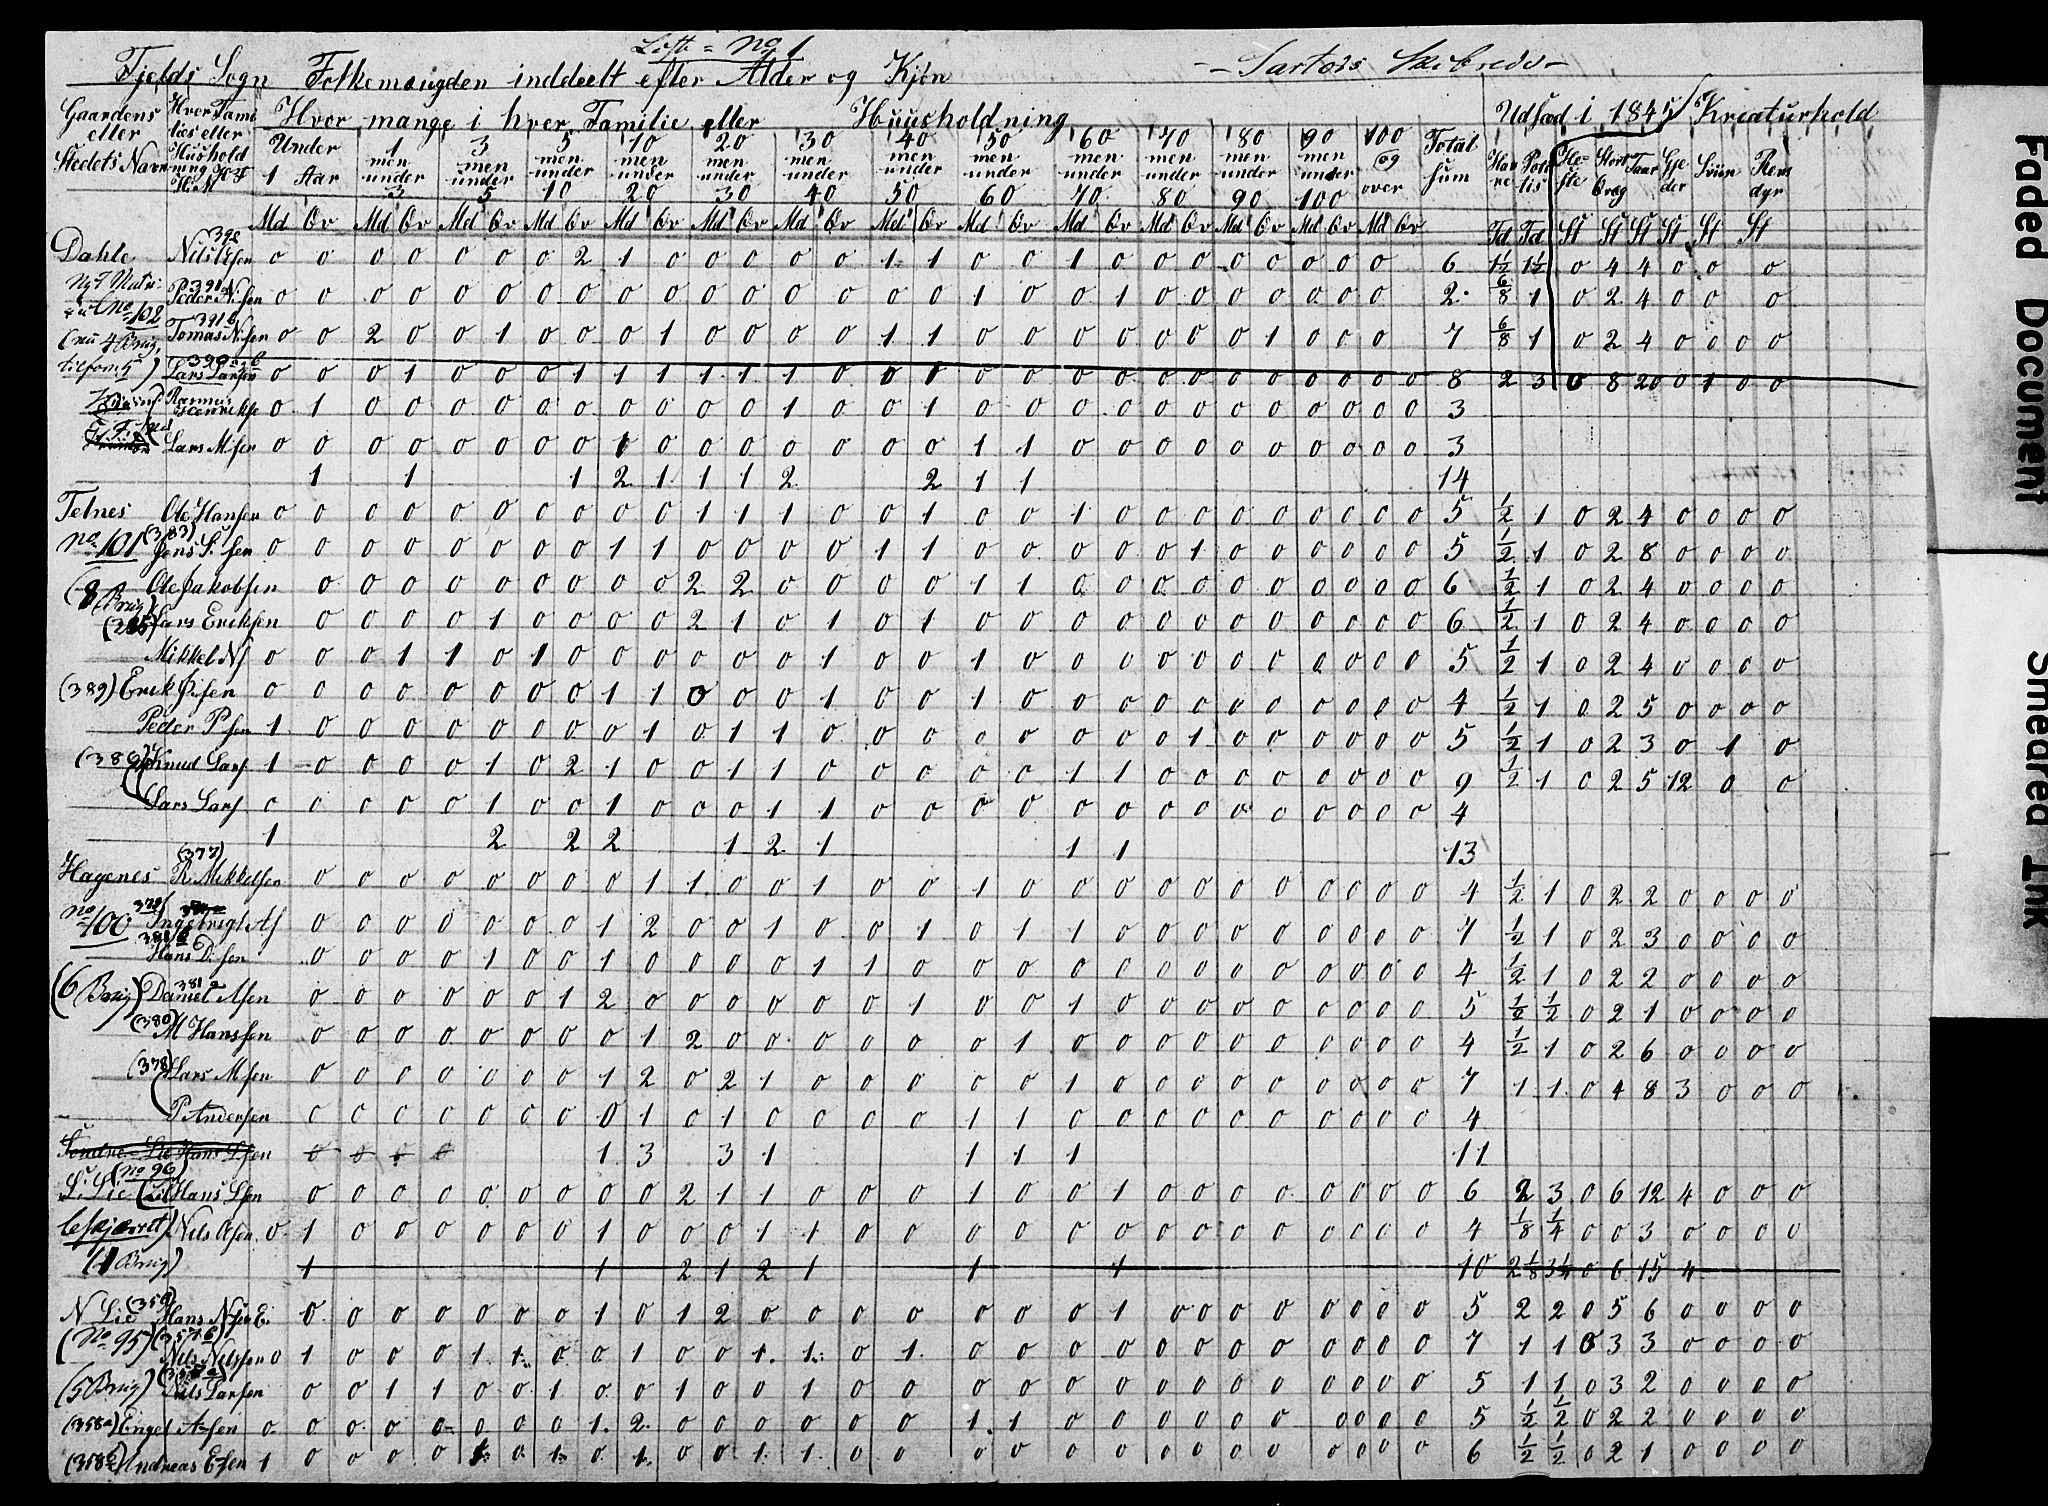 Liste = No 1
Fjelds Sogn Folkemængden inddeelt efter Alder og Kjøn -- Sartors Skibrede --
Gaardens eller Stedets Navn Hver Families eller Hushold Hvor mange i hver Familie eller Huusholdning Udsæd i 1845 Kreaturhold
Under 1 Aar 1 men under 3 3 men under 5 5 men under 10 10 men under 20 20 men under 30 30 men under 40 40 men under 50 50 men under 60 60 men under 70 70 men under 80 80 men under 90 90 men under 100 100 og over Total sum Havre Potetis Heste Stort Qvæg Faar Gjeder Sviin Rensdyr
Md Qv Md Qv Md Qv Md Qv Md Qv Md Qv Md Qv Md Qv Md Qv Md Qv Md Qv Md Qv Md Qv Md Qv Td Td St St St St St St
Dahle 392 Nils 0 0 0 0 0 0 0 2 1 0 0 0 0 0 1 1 0 0 1 0 0 0 0 0 0 0 0 6 1½ 1½ 0 4 4 0 0 0
No 102 Peder Nilsen 0 0 0 0 0 0 0 0 0 0 0 0 0 0 0 0 1 0 0 1 0 0 0 0 0 0 0 2 6/8 1 0 2 4 0 0 0
(nu 4 Brug 391 b Tomas Nilsen 0 0 2 0 0 1 0 0 0 1 0 0 0 0 1 1 0 0 0 0 0 0 0 1 0 0 0 7 6/8 1 0 2 4 0 0 0 0
Lars Larsen 0 0 0 1 0 0 0 1 1 1 1 1 1 0 0 0 0 0 0 0 0 0 0 0 0 0 0 8 2 3 0 8 20 0 1 0 0
0 1 0 0 0 0 0 0 0 0 0 0 1 0 0 1 0 0 0 0 0 0 0 0 0 0 0 0 3
Lars M.sen 0 0 0 0 0 0 0 0 1 0 0 0 0 0 0 0 1 1 0 0 0 0 0 0 0 0 0 0 3
1 1 1 2 1 1 1 2 2 1 1 14
Telnes Ole Hansen 0 0 0 0 0 0 0 0 0 0 1 1 1 0 0 1 0 0 1 0 0 0 0 0 0 0 0 0 5 ½ 1 0 2 4 0 0 0 0
No 101 (383) Jens S.sen 0 0 0 0 0 0 0 0 1 1 0 0 0 0 1 1 0 0 0 0 0 1 0 0 0 0 0 0 5 ½ 1 0 2 8 0 0 0 0
(8 Brug) Ole Jakobsen 0 0 0 0 0 0 0 0 0 2 2 0 0 0 0 1 1 0 0 0 0 0 0 0 0 0 0 6 ½ 1 0 2 4 0 0 0 0
Lars Eriksen 0 0 0 0 1 0 0 0 0 2 1 0 1 0 1 0 0 0 0 0 0 0 0 0 0 0 0 6 ½ 1 0 2 4 0 0 0 0
Mikkel N 0 0 0 1 1 0 1 0 0 0 0 0 0 1 0 0 1 0 0 0 0 0 0 0 0 0 0 0 5 ½ 1 0 2 4 0 0 0 0
(389) Erik 0 0 0 0 0 0 0 0 1 1 0 0 0 1 0 0 1 0 0 0 0 0 0 0 0 0 0 0 4 ½ 1 0 2 5 0 0 0 0
Peder P.sen 1 0 0 0 0 0 0 0 0 1 0 1 1 0 0 0 0 0 0 0 0 1 0 0 0 0 0 0 5 ½ 1 0 2 3 0 1 0
Knud Lars 1 0 0 0 0 1 0 2 1 0 0 1 1 0 0 0 0 0 1 1 0 0 0 0 0 0 0 0 9 ½ 1 0 2 5 12 0 0
Lars Lars 0 0 0 0 0 1 0 0 1 0 0 0 1 1 0 0 0 0 0 0 0 0 0 0 0 0 0 0 4
1 2 2 2 1 2 1 1 1 13
(377)
Hagenes R. Mikkelsen 0 0 0 0 0 0 0 0 1 1 0 0 1 0 0 1 0 0 0 0 0 0 0 0 0 0 0 4 ½ 1 0 2 2 0 0 0 0
No 100 Ingebrigt A 0 0 0 0 0 0 0 1 2 0 0 1 0 0 1 0 1 1 0 0 0 0 0 0 0 0 0 7 ½ 1 0 2 3 0 0 0 0
Hans D.sen 0 0 0 0 1 0 0 1 0 0 0 0 1 1 0 0 0 0 0 0 0 0 0 0 0 0 0 4 ½ 1 0 2 2 0 0 0 0
(6 Brug) 381 a Daniel M.sen 0 0 0 0 0 0 1 2 0 0 0 0 0 0 1 0 0 1 0 0 0 0 0 0 0 0 0 5 ½ ½ 0 2 1 0 0 0 0
(380) M Hanssen 0 0 0 0 0 0 0 0 1 2 0 0 0 0 0 0 1 0 0 0 0 0 0 0 0 0 0 4 ½ 1 0 2 6 0 0 0 0
(378) Lars M.sen 0 0 0 0 0 0 0 1 2 0 2 1 0 0 0 0 0 1 0 0 0 0 0 0 0 0 0 7 1 1 0 4 8 3 0 0 0
P. Andersen 0 0 0 0 0 0 0 0 1 0 1 0 0 0 0 1 1 0 0 0 0 0 0 0 0 0 0 4
Søndre Lie Hans L.sen 0 0 0 0 1 3 3 1 1 1 1 11
(no 96)
S. Lie Hans L.sen 0 0 0 0 0 0 0 0 0 2 1 1 0 0 0 1 0 0 1 0 0 0 0 0 0 0 0 6 2 3 0 6 12 4 0 0 0
Nils O.sen 0 1 0 0 0 0 0 0 1 0 0 0 1 1 0 0 0 0 0 0 0 0 0 0 0 0 0 0 4 1/8 ¼ 0 0 3 0 0 0 0
(1 Brug) 1 1 2 1 2 1 1 1 10 2 1/8 3 ¼ 0 6 15 4
N Lie Hans 0 0 0 0 0 0 0 1 0 1 2 0 0 0 0 0 0 0 1 0 0 0 0 0 0 0 0 5 2 2 0 5 6 0 0 0 0
(No 95) Nils Nilssen 0 1 0 0 0 1 1 0 0 1 0 0 1 1 0 1 0 0 0 0 0 0 0 0 0 0 0 0 7 1 1 0 3 3 0 0 0 0
(5 Brug) Nils Larsen 0 0 1 1 0 0 1 0 0 1 0 0 1 0 0 0 0 0 0 0 0 0 0 0 0 0 0 5 1 1 0 3 2 0 0 0 0
(358a) Engel A.sen 0 0 0 0 0 0 0 0 1 2 0 0 0 0 0 0 1 1 0 0 0 0 0 0 0 0 0 0 5 ½ ½ 0 2 2 0 0 0 0
Andreas E.sen 1 0 0 0 0 1 0 1 0 1 0 0 1 1 0 0 0 0 0 0 0 0 0 0 0 0 0 0 6 ½ ½ 0 2 1 0 0 0 0
Faded Document
Smeared Ink